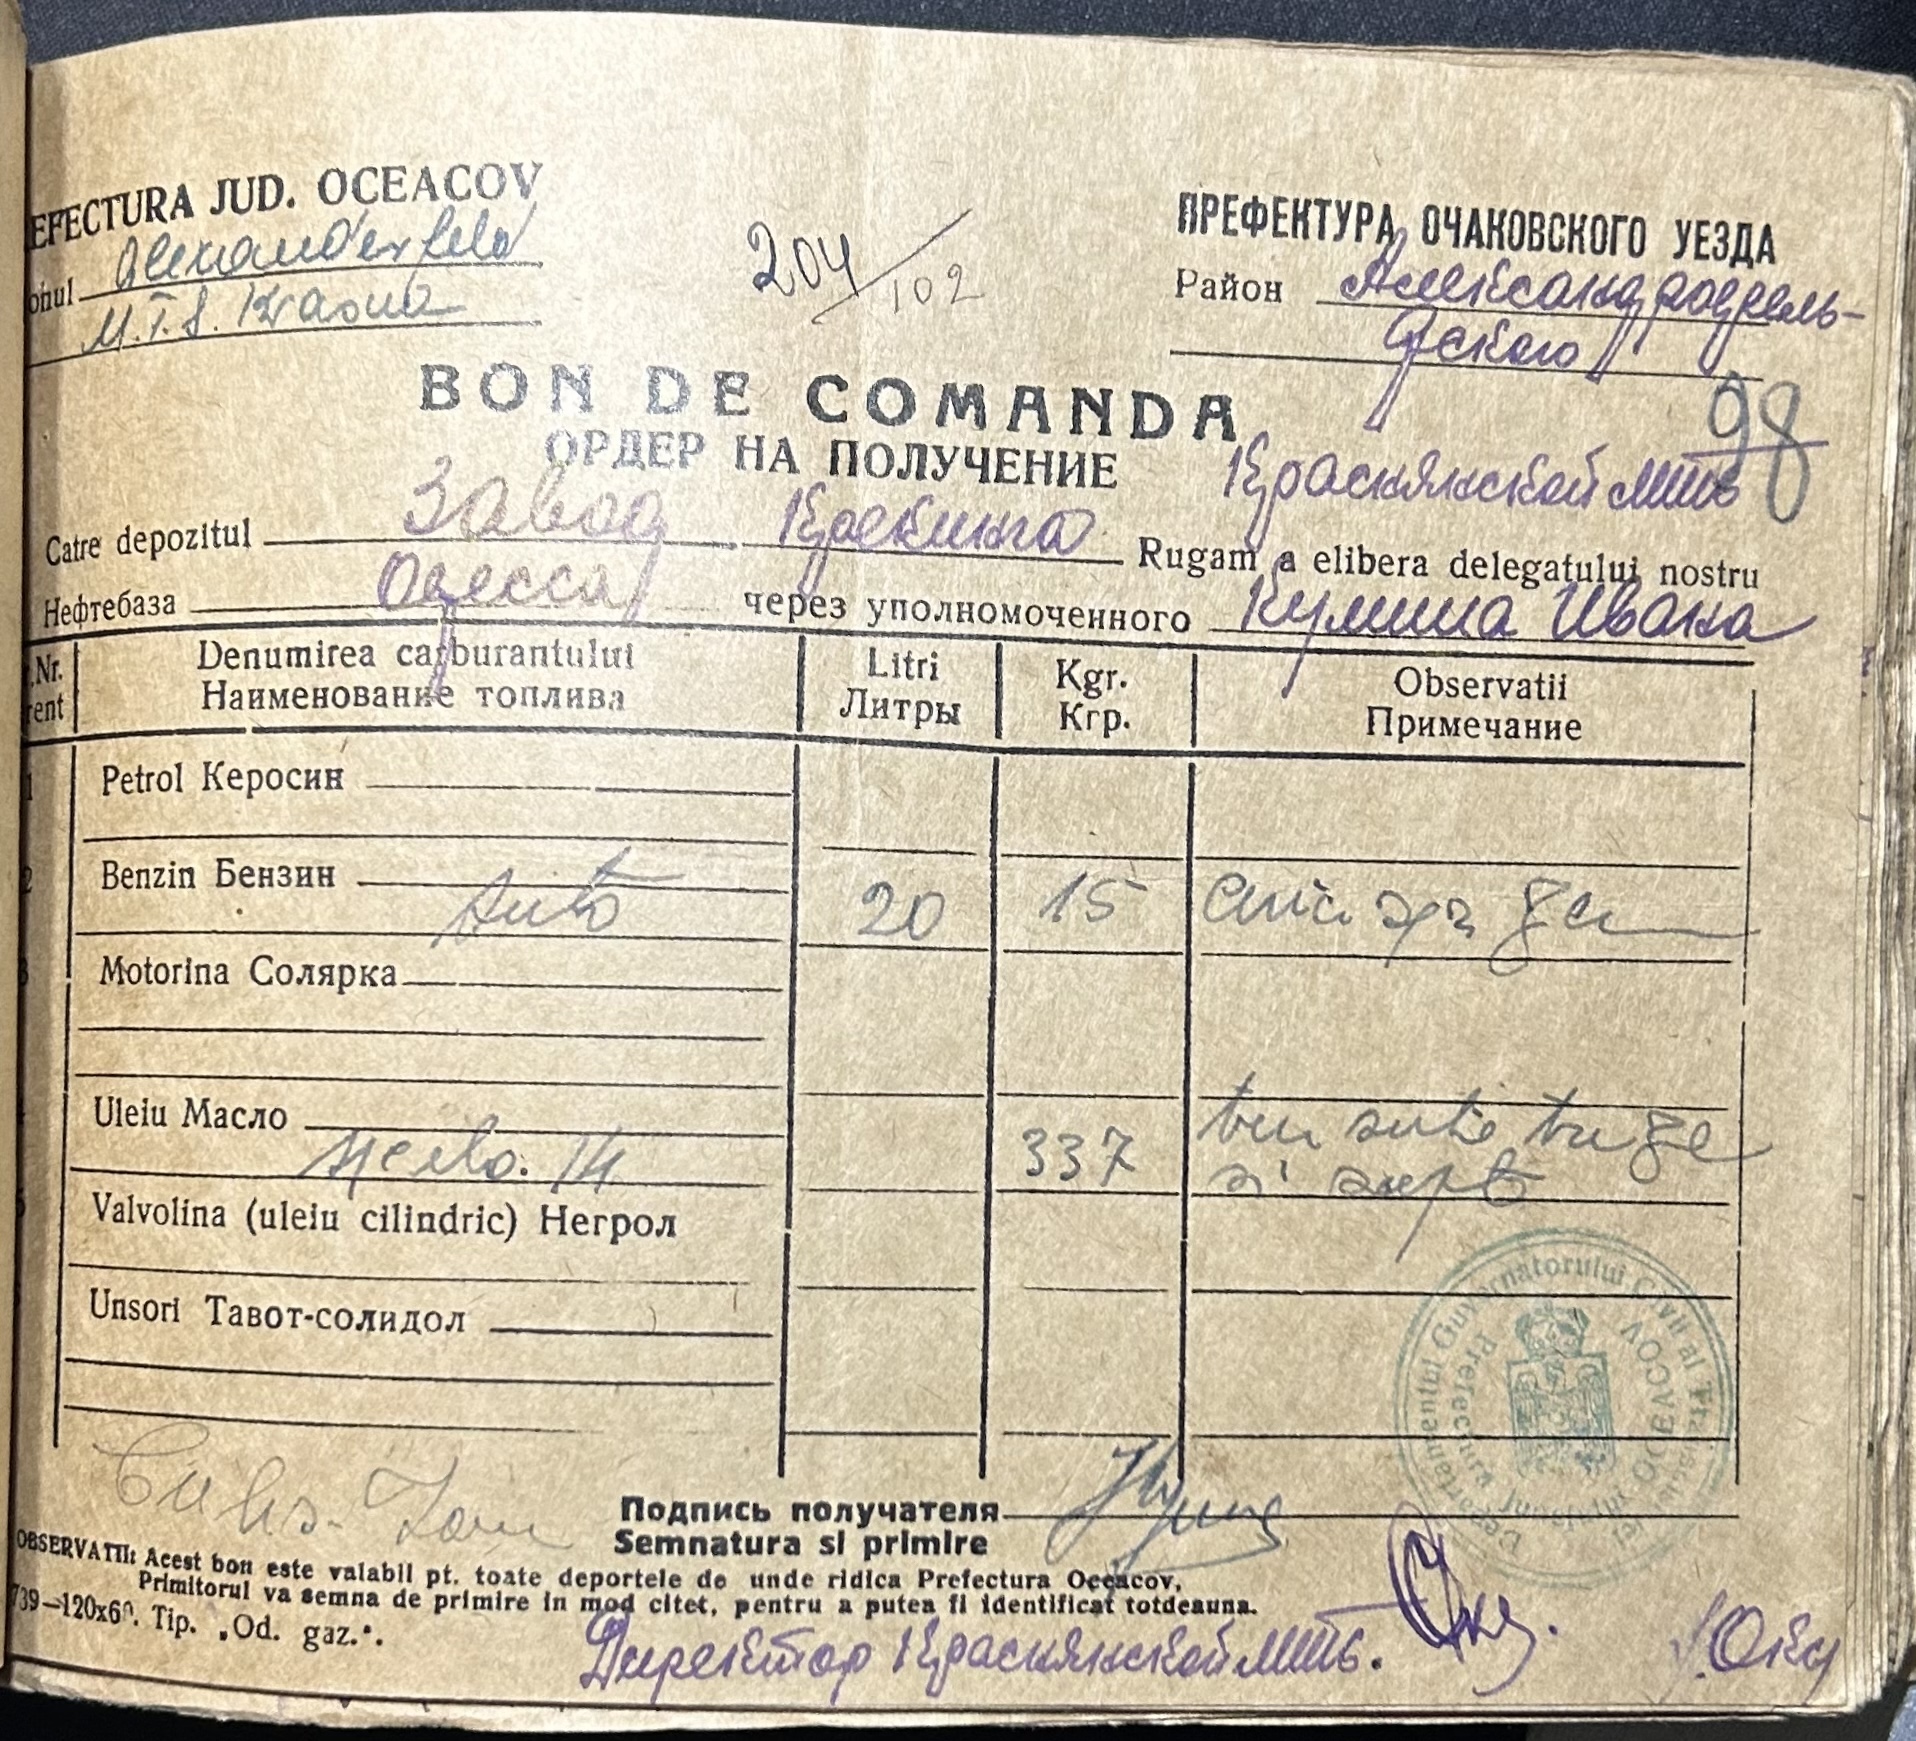 EFECTURA JUD. OCEACOV
onul Alexanderfeld
M.T.S. Krasna
204/102
ПРЕФЕКТУРА ОЧАКОВСКОГО УЕЗДА
Район Александрфель-
дского
98
BON DE COMANDA
ОРДЕР НА ПОЛУЧЕНИЕ
Краснянской МТС
Catre depozitul Завод Крекинга Rugam a elibera delegatului nostru
Нефтебаза Одесса через уполномоченного Ивана
Nr. Denumirea carburantului Litri Kgr. Observatii
rent Наименование топлива Литры Кгр. Примечание
1 Petrol Керосин
2 Benzin Бензин
Auto 20 15
3 Motorina Солярка
Uleiu Масло
337 trei sute trei zeci
si sapte
5 Valvolina (uleiu cilindric) Негрол
Unsori Тавот-солидол
Departamentul Guvernatorului Civil al
Prefectura Judetului OCEACOV
Подпись получателя
Semnatura si primire
OBSERVATII: Acest bon este valabil pt. toate deportele de unde ridica Prefectura Oceacov,
Primitorul va semna de primire in mod citet, pentru a putea fi identificat totdeauna.
739—120x60. Tip. „Od. gaz.".
Директор Краснянской МТС.